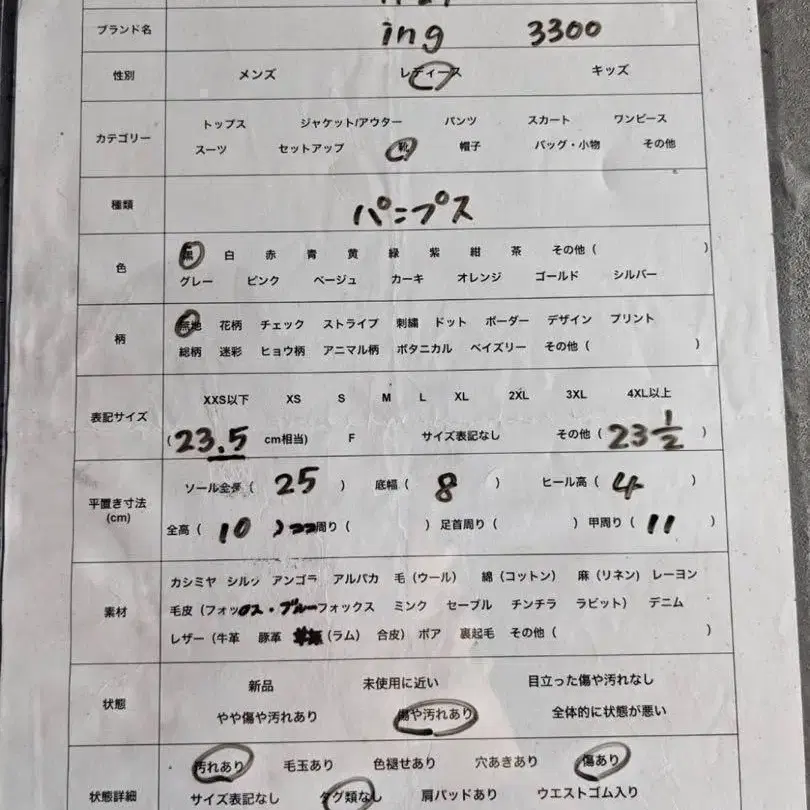 ブランド名 ing 3300
性別 メンズ レディース キッズ
カテゴリー
トップス ジャケット/アウター パンツ スカート ワンピース
スーツ セットアップ 靴 帽子 バッグ・小物 その他
種類 パンプス
色
黒 白 赤 青 黄 緑 紫 紺 茶 その他 ( )
グレー ピンク ベージュ カーキ オレンジ ゴールド シルバー
柄
無地 花柄 チェック ストライプ 刺繍 ドット ボーダー デザイン プリント
総柄 迷彩 ヒョウ柄 アニマル柄 ボタニカル ペイズリー その他 ( )
表記サイズ
XXS以下 XS S M L XL 2XL 3XL 4XL以上
( 23.5 cm相当) F サイズ表記なし その他 ( 23 1/2 )
平置き寸法
(cm)
ソール全長 ( 25 ) 底幅 ( 8 ) ヒール高 ( 4 )
全高 ( 10 ) 周り ( ) 足首周り ( ) 甲周り ( 11 )
素材
カシミヤ シルク アンゴラ アルパカ 毛 (ウール) 綿 (コットン) 麻 (リネン) レーヨン
毛皮 (フォックス・ブルーフォックス ミンク セーブル チンチラ ラビット) デニム
レザー (牛革 豚革 (ラム) 合皮) ボア 裏起毛 その他 ( )
状態
新品 未使用に近い 目立った傷や汚れなし
やや傷や汚れあり 傷や汚れあり 全体的に状態が悪い
状態詳細
汚れあり 毛玉あり 色褪せあり 穴あきあり 傷あり
サイズ表記なし タグ類なし 肩パッドあり ウエストゴム入り